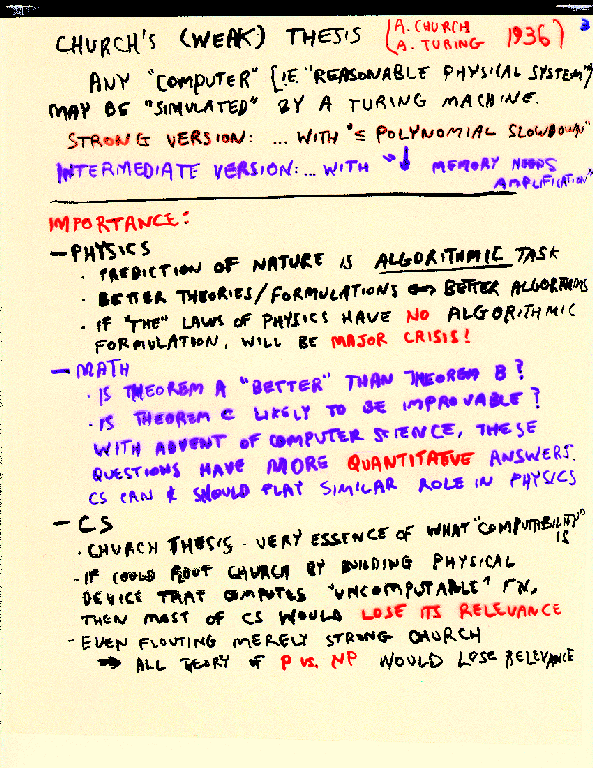 3
CHURCH'S (WEAK) THESIS (A. CHURCH A. TURING 1936)
ANY "COMPUTER" [IE "REASONABLE PHYSICAL SYSTEM"]
MAY BE "SIMULATED" BY A TURING MACHINE.
STRONG VERSION: ... WITH "≤ POLYNOMIAL SLOWDOWN"
INTERMEDIATE VERSION: ... WITH "↓ MEMORY NEEDS
AMPLIFICATION"
IMPORTANCE:
— PHYSICS
· PREDICTION OF NATURE IS ALGORITHMIC TASK
· BETTER THEORIES/FORMULATIONS ⇔ BETTER ALGORITHMS
· IF "THE" LAWS OF PHYSICS HAVE NO ALGORITHMIC
FORMULATION, WILL BE MAJOR CRISIS!
— MATH
· IS THEOREM A "BETTER" THAN THEOREM B?
· IS THEOREM C LIKELY TO BE IMPROVABLE?
WITH ADVENT OF COMPUTER SCIENCE, THESE
QUESTIONS HAVE MORE QUANTITATIVE ANSWERS.
CS CAN & SHOULD PLAY SIMILAR ROLE IN PHYSICS
— CS
· CHURCH THESIS - VERY ESSENCE OF WHAT "COMPUTABILITY"
IS
- IF COULD FLOUT CHURCH BY BUILDING PHYSICAL
DEVICE THAT COMPUTES "UNCOMPUTABLE" FN,
THEN MOST OF CS WOULD LOSE ITS RELEVANCE
- EVEN FLOUTING MERELY STRONG CHURCH
⇒ ALL THEORY OF P VS. NP WOULD LOSE RELEVANCE